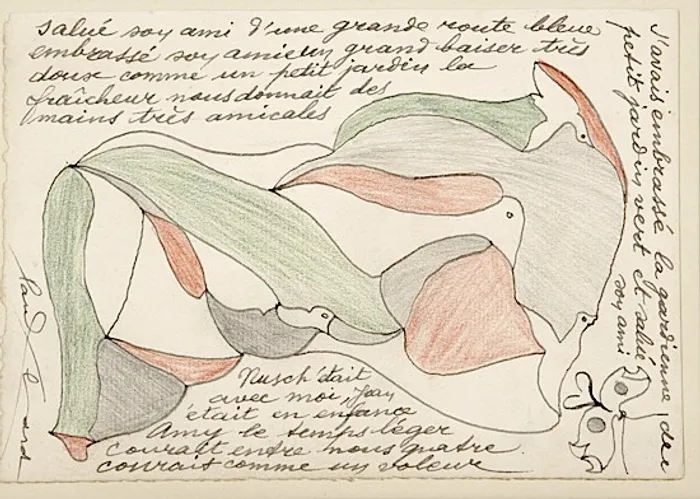 salué soy ami d'une grande route bleue
embrassé soy amie un grand baiser très
doux comme un petit jardin la
fraîcheur nous donnait des
mains très amicales
J'avais embrassé la gardienne des
petit jardin vert et salué
soy ami
Nusch était
avec moi,
était en enfance
Amy le temps léger
courait entre nous quatre
courait comme un voleur
Paul